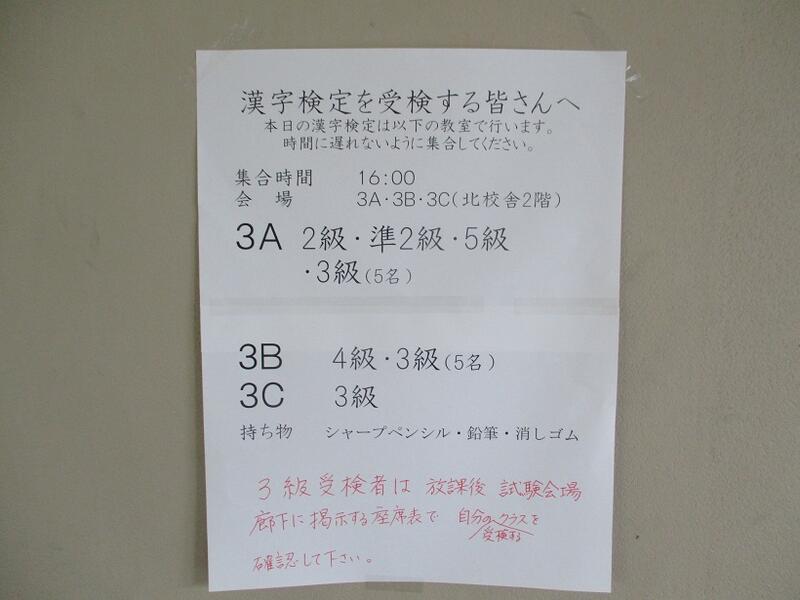 漢字検定を受検する皆さんへ
本日の漢字検定は以下の教室で行います。
時間に遅れないように集合してください。
集合時間 16:00
会 場 3A・3B・3C(北校舎2階)
3A 2級・準2級・5級
・3級(5名)
3B 4級・3級(5名)
3C 3級
持ち物 シャープペンシル・鉛筆・消しゴム
3級受検者は 放課後 試験会場
廊下に掲示する座席表で 自分のクラスを
受検する
確認して下さい。